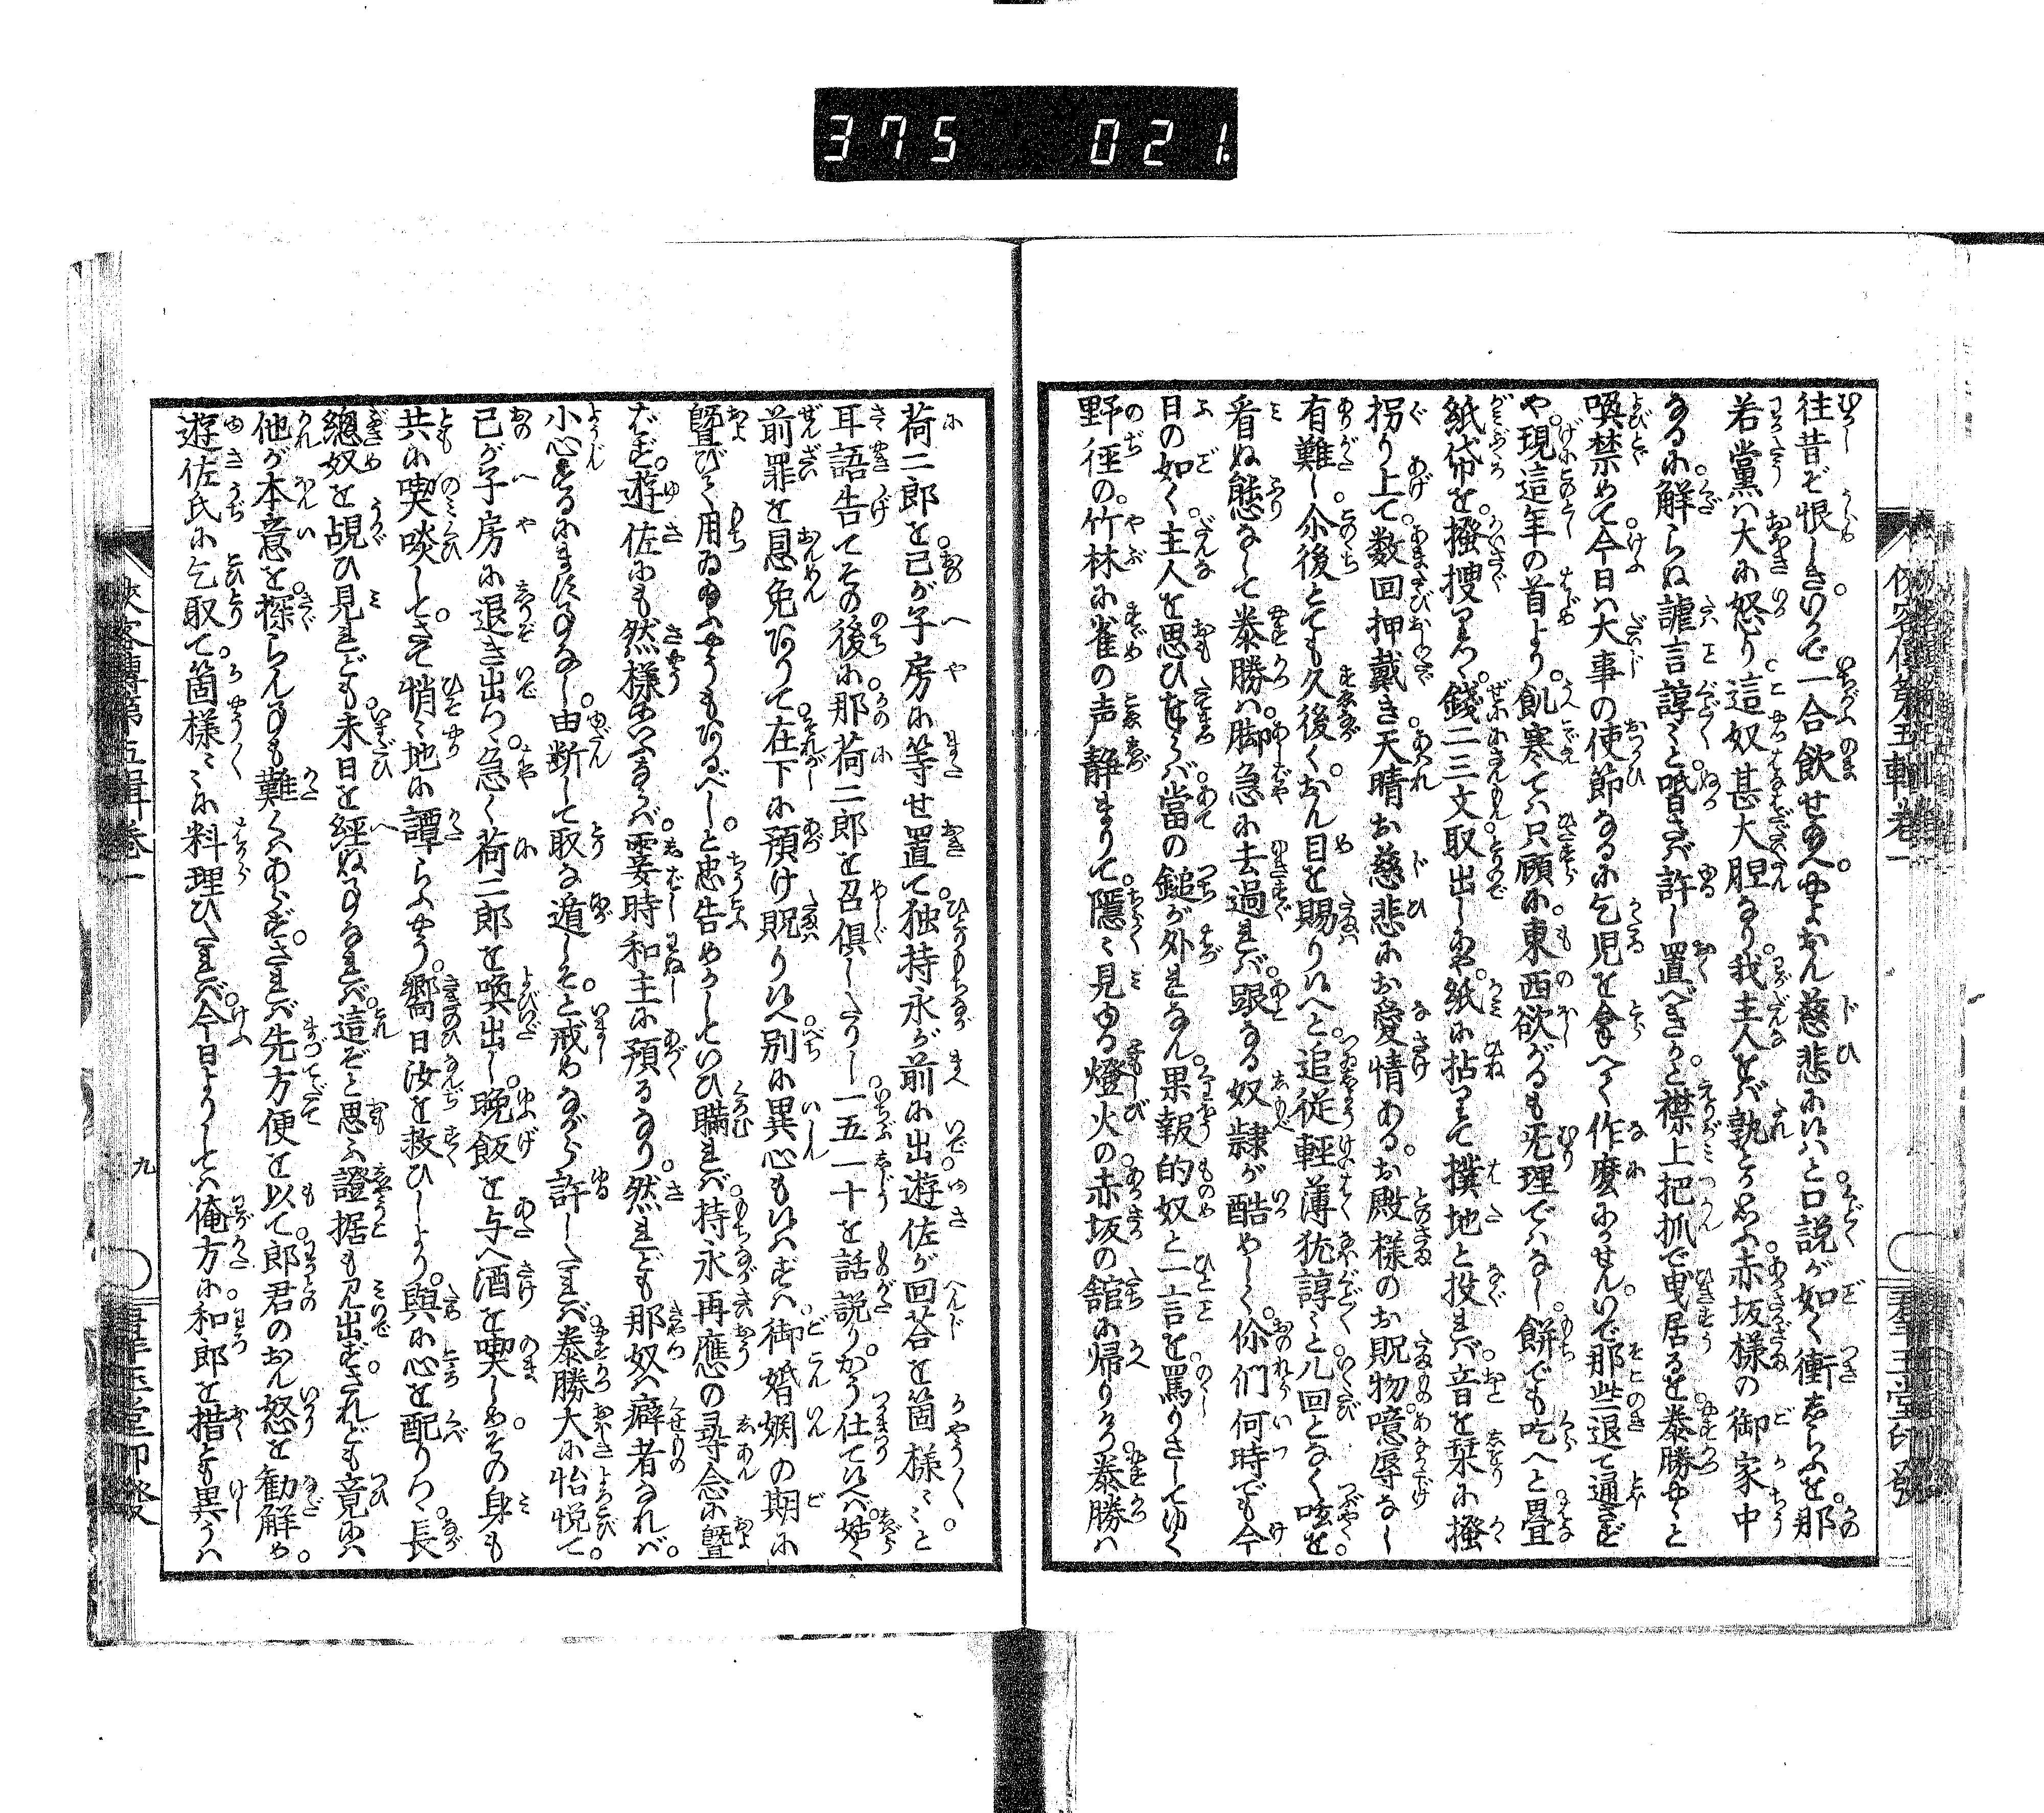 375 021
往昔ぞ恨しき。いかで一合飲せ給へやよおん慈悲に候と口説が如く衝あらふを。那
若黨ハ大に怒り。這奴甚大胆なり。我主人をバ孰とか思ふ赤坂様の御家中
なるに。解らぬ謔言諄々と。咾さバ許し置べきかと襟上把抓で曳居るを泰勝やゝと
喚禁めて。今日ハ大事の使節なるに乞児を拿へて作麼にかせん。いで那些退て通さず
や。現這年の首より。飢寒てハ只顧に。東西欲がるも无理でハなし。餅でも吃へと畳
紙袋を。掻捜りつゝ。錢二三文取出しやをら。紙に拈りて撲地と投れバ。音を栞に掻
拐り上て。数回押戴き。天晴お慈悲にお愛情ある。お殿様のお貺物。噫辱なし
有難し。尒後とても久後く。おん目を賜り候へと。追従輕薄猶諄々と。几回となく呟を。
看ぬ態なして泰勝ハ。脚急に去過れバ。跟なる奴隷が酷やしく。你們何時でも今
日の如く。主人を思ひなバ。當の鎚が外れなん。果報的奴と一言を罵りさしてゆく
野徑の。竹林に雀の声静まりて。隱々見ゆる燈火の。赤坂の舘に帰りける。泰勝ハ
荷二郎を。己が子房に等せ置て。独持永が前に出。遊佐が回荅を箇様々々と
耳語告てその後に。那荷二郎を召倶したりし。一五一十を話説り。かう仕て候へバ。姑く
前罪を恩免ありて。在下に預け貺り候へ。別に異心も候ハずハ。御婚姻の期に
曁びて用ゐ給ふやうもあるべし。と忠告めかしといひ瞞れバ。持永再應の尋念に曁
ばず。遊佐にも然様いふならバ。霎時和主に預るなり。然れども那奴ハ癖者なれバ。
小心するにますことなし。由断して取な遁しそ。と戒めながら許したれバ。泰勝大に怡悦て。
己が子房に退き出つ。急く荷二郎を喚出し。晩飯を与へ酒を喫しめ。その身も
共に喫啖して。さて悄々地に譚らふやう。嚮日汝を救ひしより。與に心を配りつゝ。長
總奴を覘ひ見れども。未日を経ぬことなれバ。這ぞと思ふ證据も見出ず。されども竟にハ
他が本意を。探らんことも難くハあらず。されバ先方便を以て。郎君のおん怒を勸解め。
遊佐氏に乞取て。箇様々々に料理ひたれバ。今日よりしてハ俺方に。和郎を措とも異うハ
俠客傳第五輯卷一
九